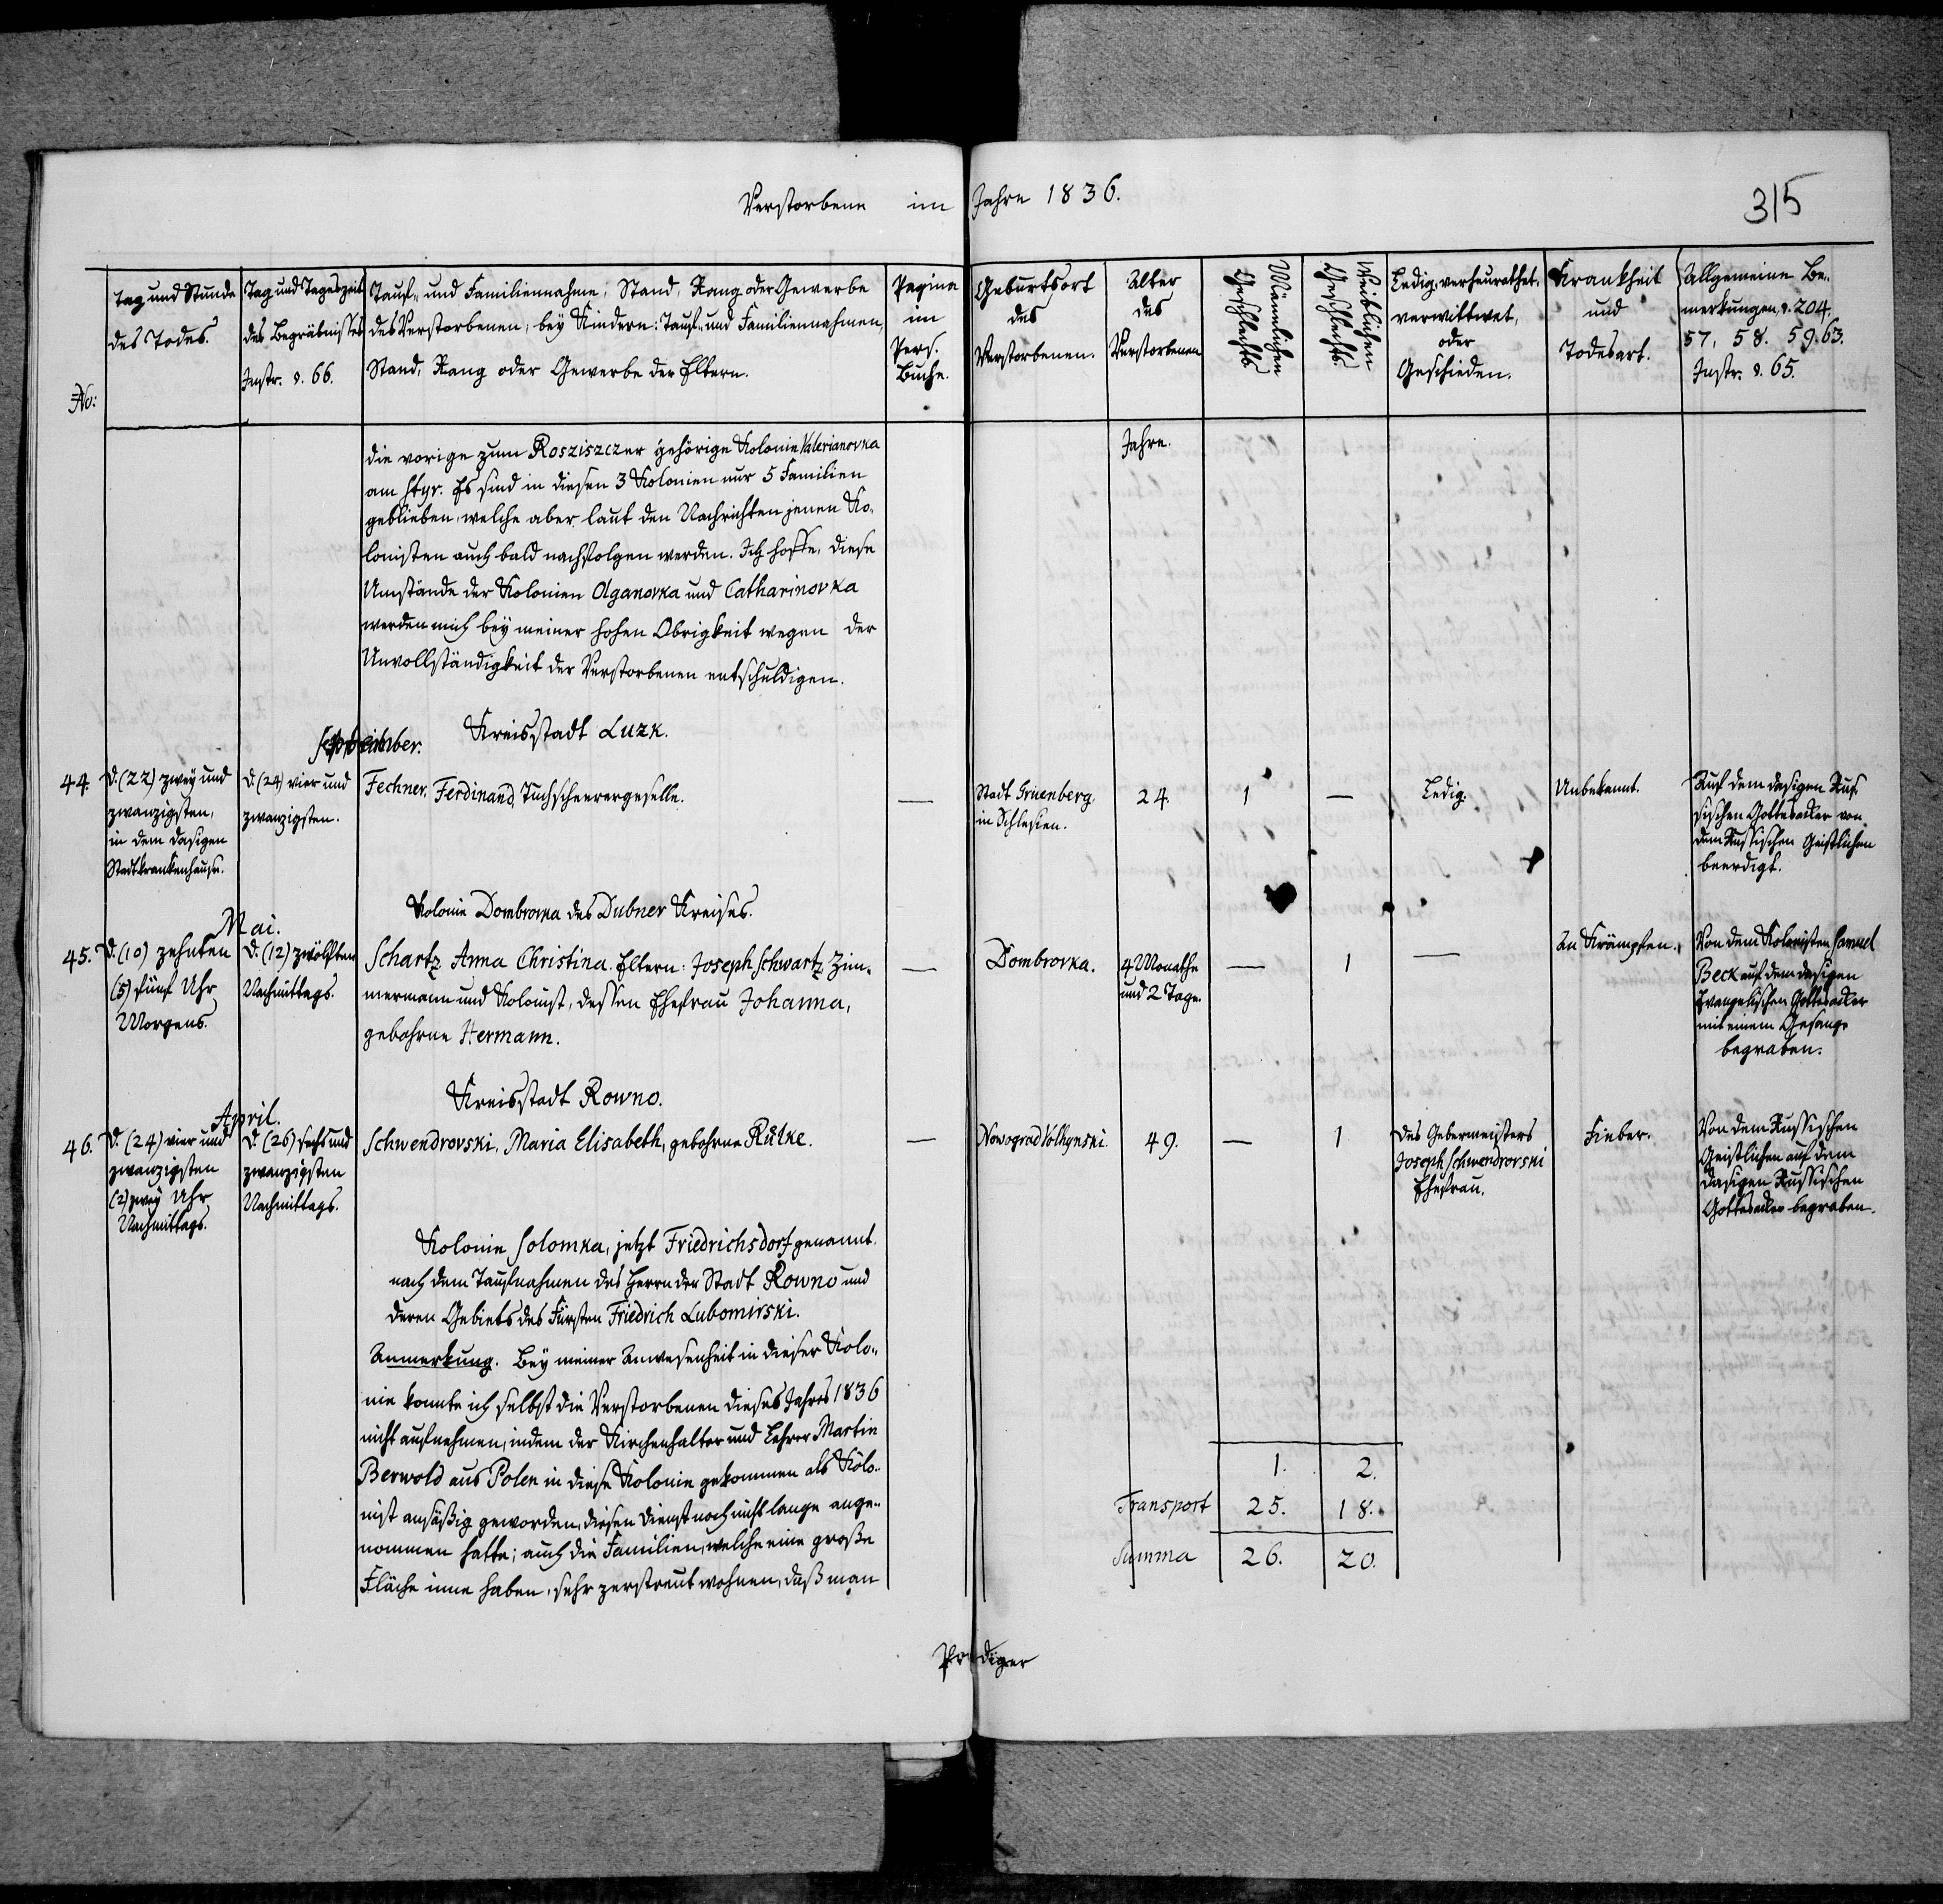 Verstorbene im Jahre 1836.
315
No:
Tag und Stunde
des Todes.
Tag und Tageszeit
des Begräbnisses
Instr. §. 66.
Tauf- und Familiennahme, Stand, Rang oder Gewerbe
des Verstorbenen, bey Kindern: Tauf- und Familiennahmen,
Stand, Rang oder Gewerbe der Eltern.
Pagina
im
Pers.
Buche.
Geburtsort
des
Verstorbenen.
Alter
des
Verstorbenen
Männlichen
Geschlechts.
Weiblichen
Geschlechts.
Ledig, verheurathet,
verwittwet,
oder
Geschieden.
Krankheit
und
Todesart.
Allgemeine Be-
merkungen, §. 204.
57, 58. 59. 63.
Instr. §. 65.
die vorige zum Rosziszczer gehörige Kolonie Valerianovka
am Styr. Es sind in diesen 3 Kolonien nur 5 Familien
geblieben, welche aber laut den Nachrichten jenen Ko-
lonisten auch bald nachfolgen werden. Ich hoffe, diese
Umstände der Kolonien Olganovka und Catharinovka
werden mich bey meiner hohen Obrigkeit wegen der
Unvollständigkeit der Verstorbenen entschuldigen.
Jahre.
Kreisstadt Luzk.
September.
44.
D. (22) zwey und
zwanzigsten,
in dem dasigen
Stadtkrankenhause.
D. (24) vier und
zwanzigsten.
Fechner, Ferdinand, Tuchscheerergeselle.
—
Stadt Gruenberg,
in Schlesien.
24.
1
—
Ledig.
Unbekannt.
Auf dem dasigen Rus-
sischen Gottesacker von
dem Russischen Geistlichen
beerdigt.
Kolonie Dombrovka des Dubner Kreises.
Mai.
45.
D. (10) zehnten
(5) fünf Uhr
Morgens.
D. (12) zwölften
Nachmittags.
Schartz Anna Christina. Eltern: Joseph Schwartz, Zim-
mermann und Kolonist, dessen Ehefrau Johanna,
gebohrne Hermann.
—
Dombrovka.
4 Monathe
und 2 Tage.
—
1
—
An Krämpfen.
Von dem Kolonisten Samuel
Beck auf dem dasigen
Evangelischen Gottesacker
mit einem Gesange
begraben.
Kreisstadt Rowno.
April.
46.
D. (24) vier und
zwanzigsten
(2) zwey Uhr
Nachmittags.
D. (26) sechs und
zwanzigsten
Nachmittags.
Schwendrovski, Maria Elisabeth, gebohrne Rülke.
—
Nowograd Volhynski.
49.
—
1
Des Gebermeisters
Joseph Schwendrovski
Ehefrau.
Fieber.
Von dem Russischen
Geistlichen auf dem
dasigen Russischen
Gottesacker begraben.
Kolonie Solomka, jetzt Friedrichsdorf genannt.
nach dem Taufnahmen des Herrn der Stadt Rowno und
deren Gebiets des Fürsten Friedrich Lubomirski.
Anmerkung. Bey meiner Anwesenheit in dieser Kolo-
nie konnte ich selbst die Verstorbenen dieses Jahres 1836
nicht aufnehmen, indem der Kirchenhalter und Lehrer Martin
Berwold aus Polen in diese Kolonie gekommen als Kolo-
nist ansäßig geworden, diesen Dienst noch nicht lange ange-
nommen hatte; auch die Familien, welche eine große
Fläche inne haben, sehr zerstreut wohnen, daß man
1. 2.
Transport 25. 18.
Summa 26. 20.
Prediger